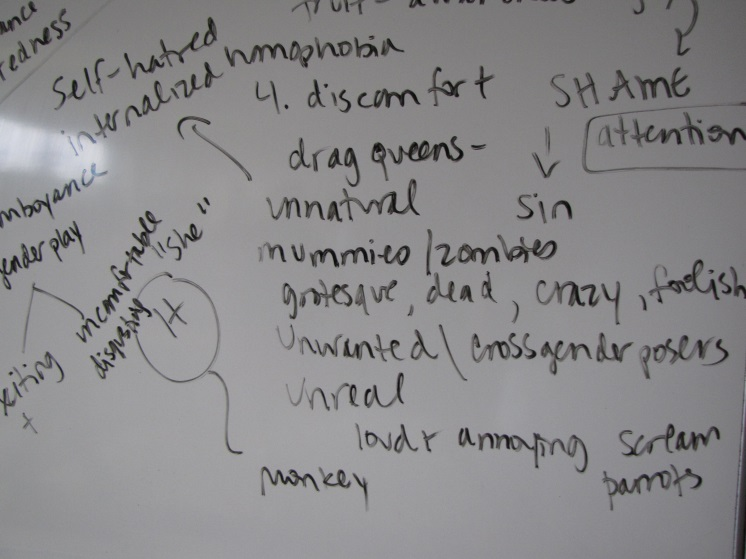 ance
redness
self-hatred
internalized homophobia
4. discomfort
SHAME
attention
drag queens-
unnatural
sin
mummies/zombies
grotesque, dead, crazy, foolish
unwanted\crossgender posers
unreal
loud + annoying scream
parrots
monkey
"she"
It
uncomfortable
disgusting
mboyance
gender play
xiting
+